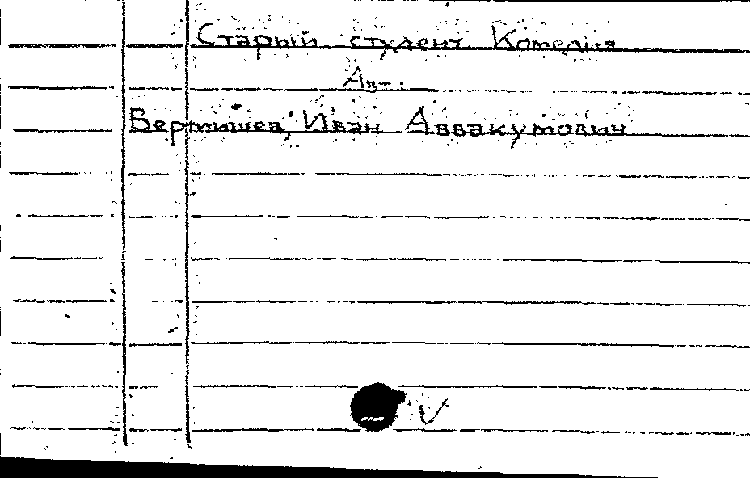 Старый студент Комедия
Авт.
Бермишев, Иван Аввакумович